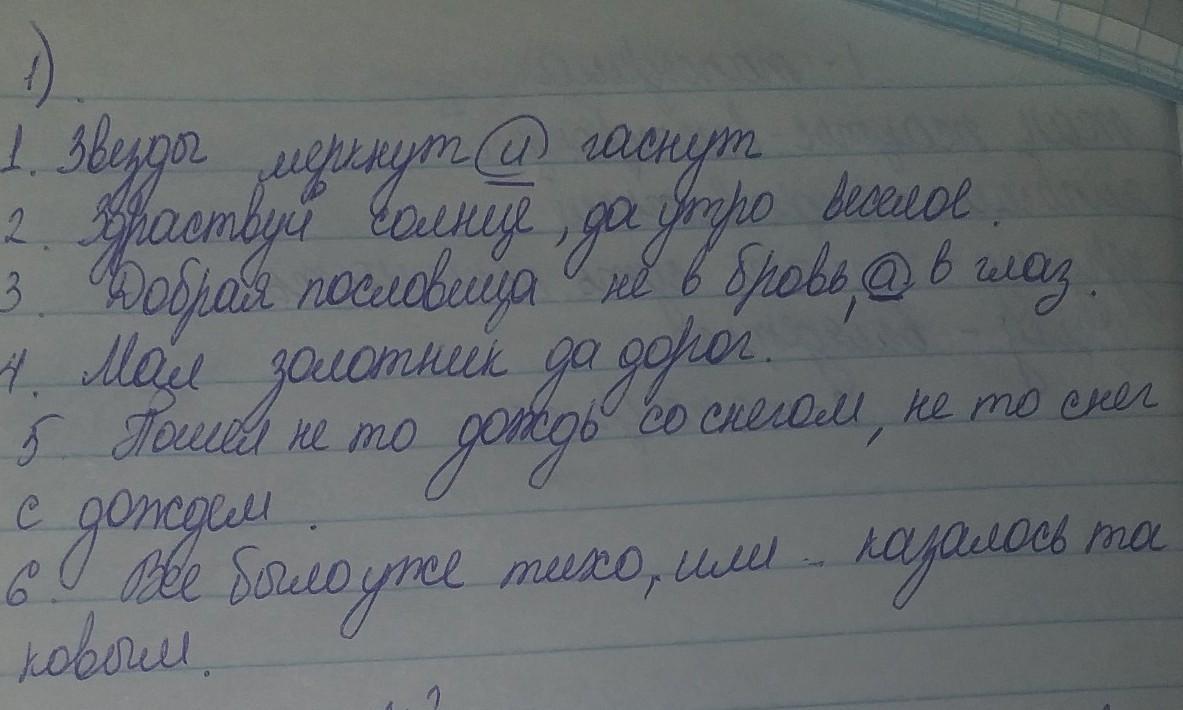 1)
1. Звезды меркнут и гаснут
2. Здраствуй солнце, да утро веселое.
3. Добрая пословица не в бровь, а в глаз.
4. Мал золотник да дорог.
5 Пошел не то дождь со снегом, не то снег
с дождем.
6. Все было уже тихо, или казалось та
ковым.